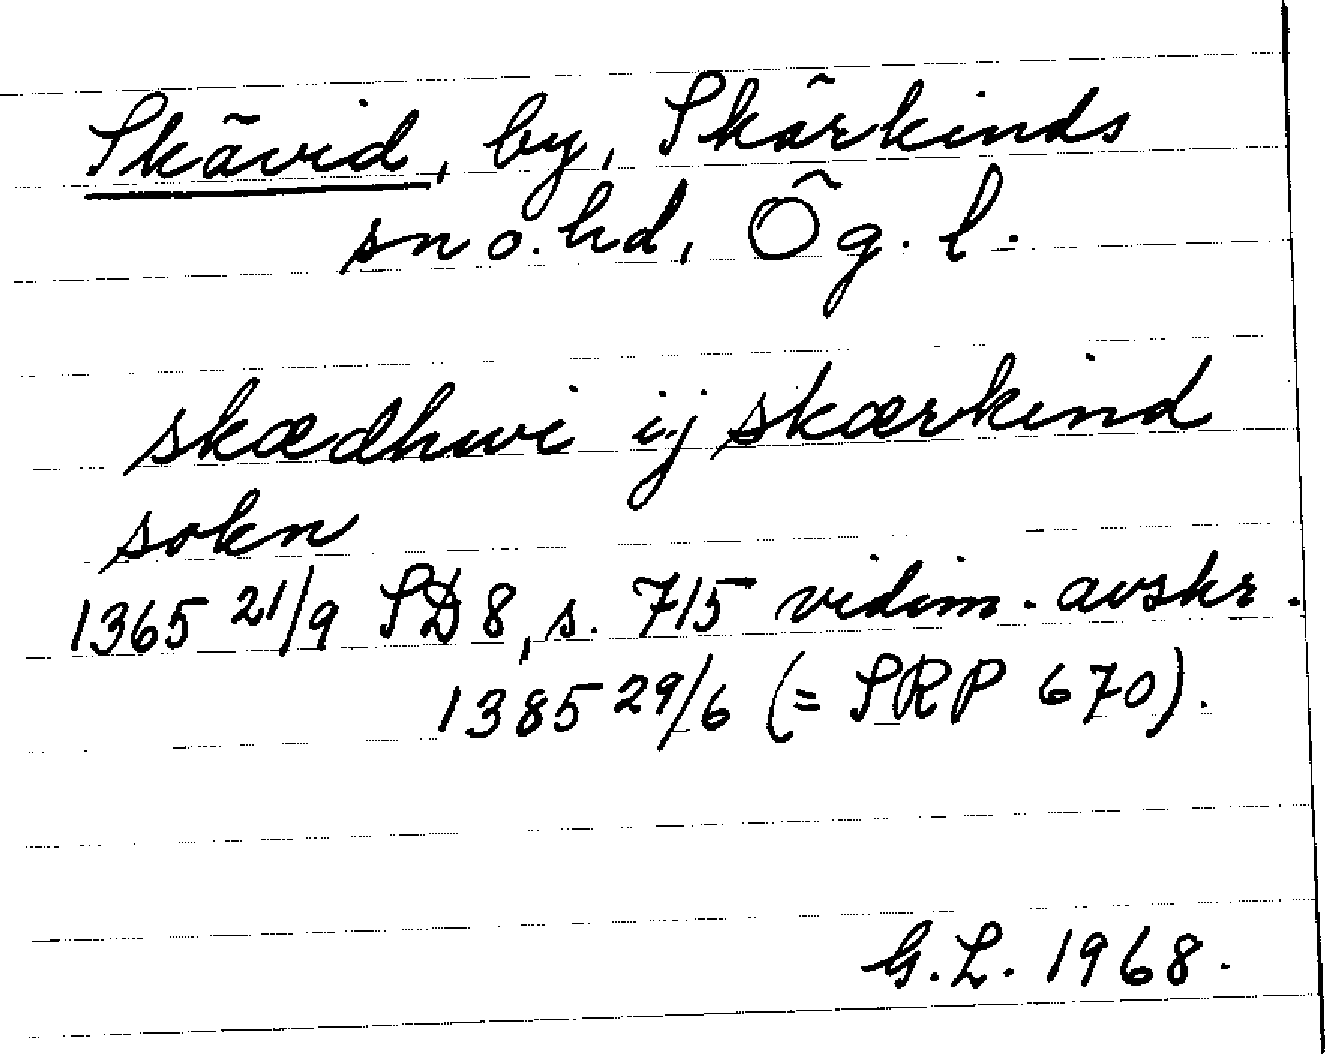 Skävid, by, Skärkinds
sn o. hd, Ög. l.
skædhwi ij skærkind
sokn
1365 21/9 SD 8, s. 715 vidim. avskr.
1385 29/6 (= SRP 670).
G.L. 1968.